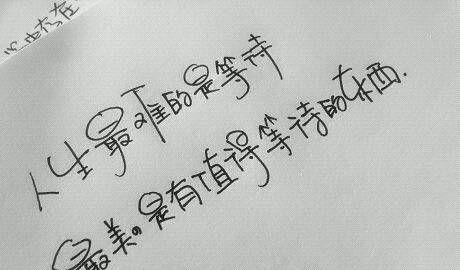 人生最难的是等待
最美。是有值得等待的东西.